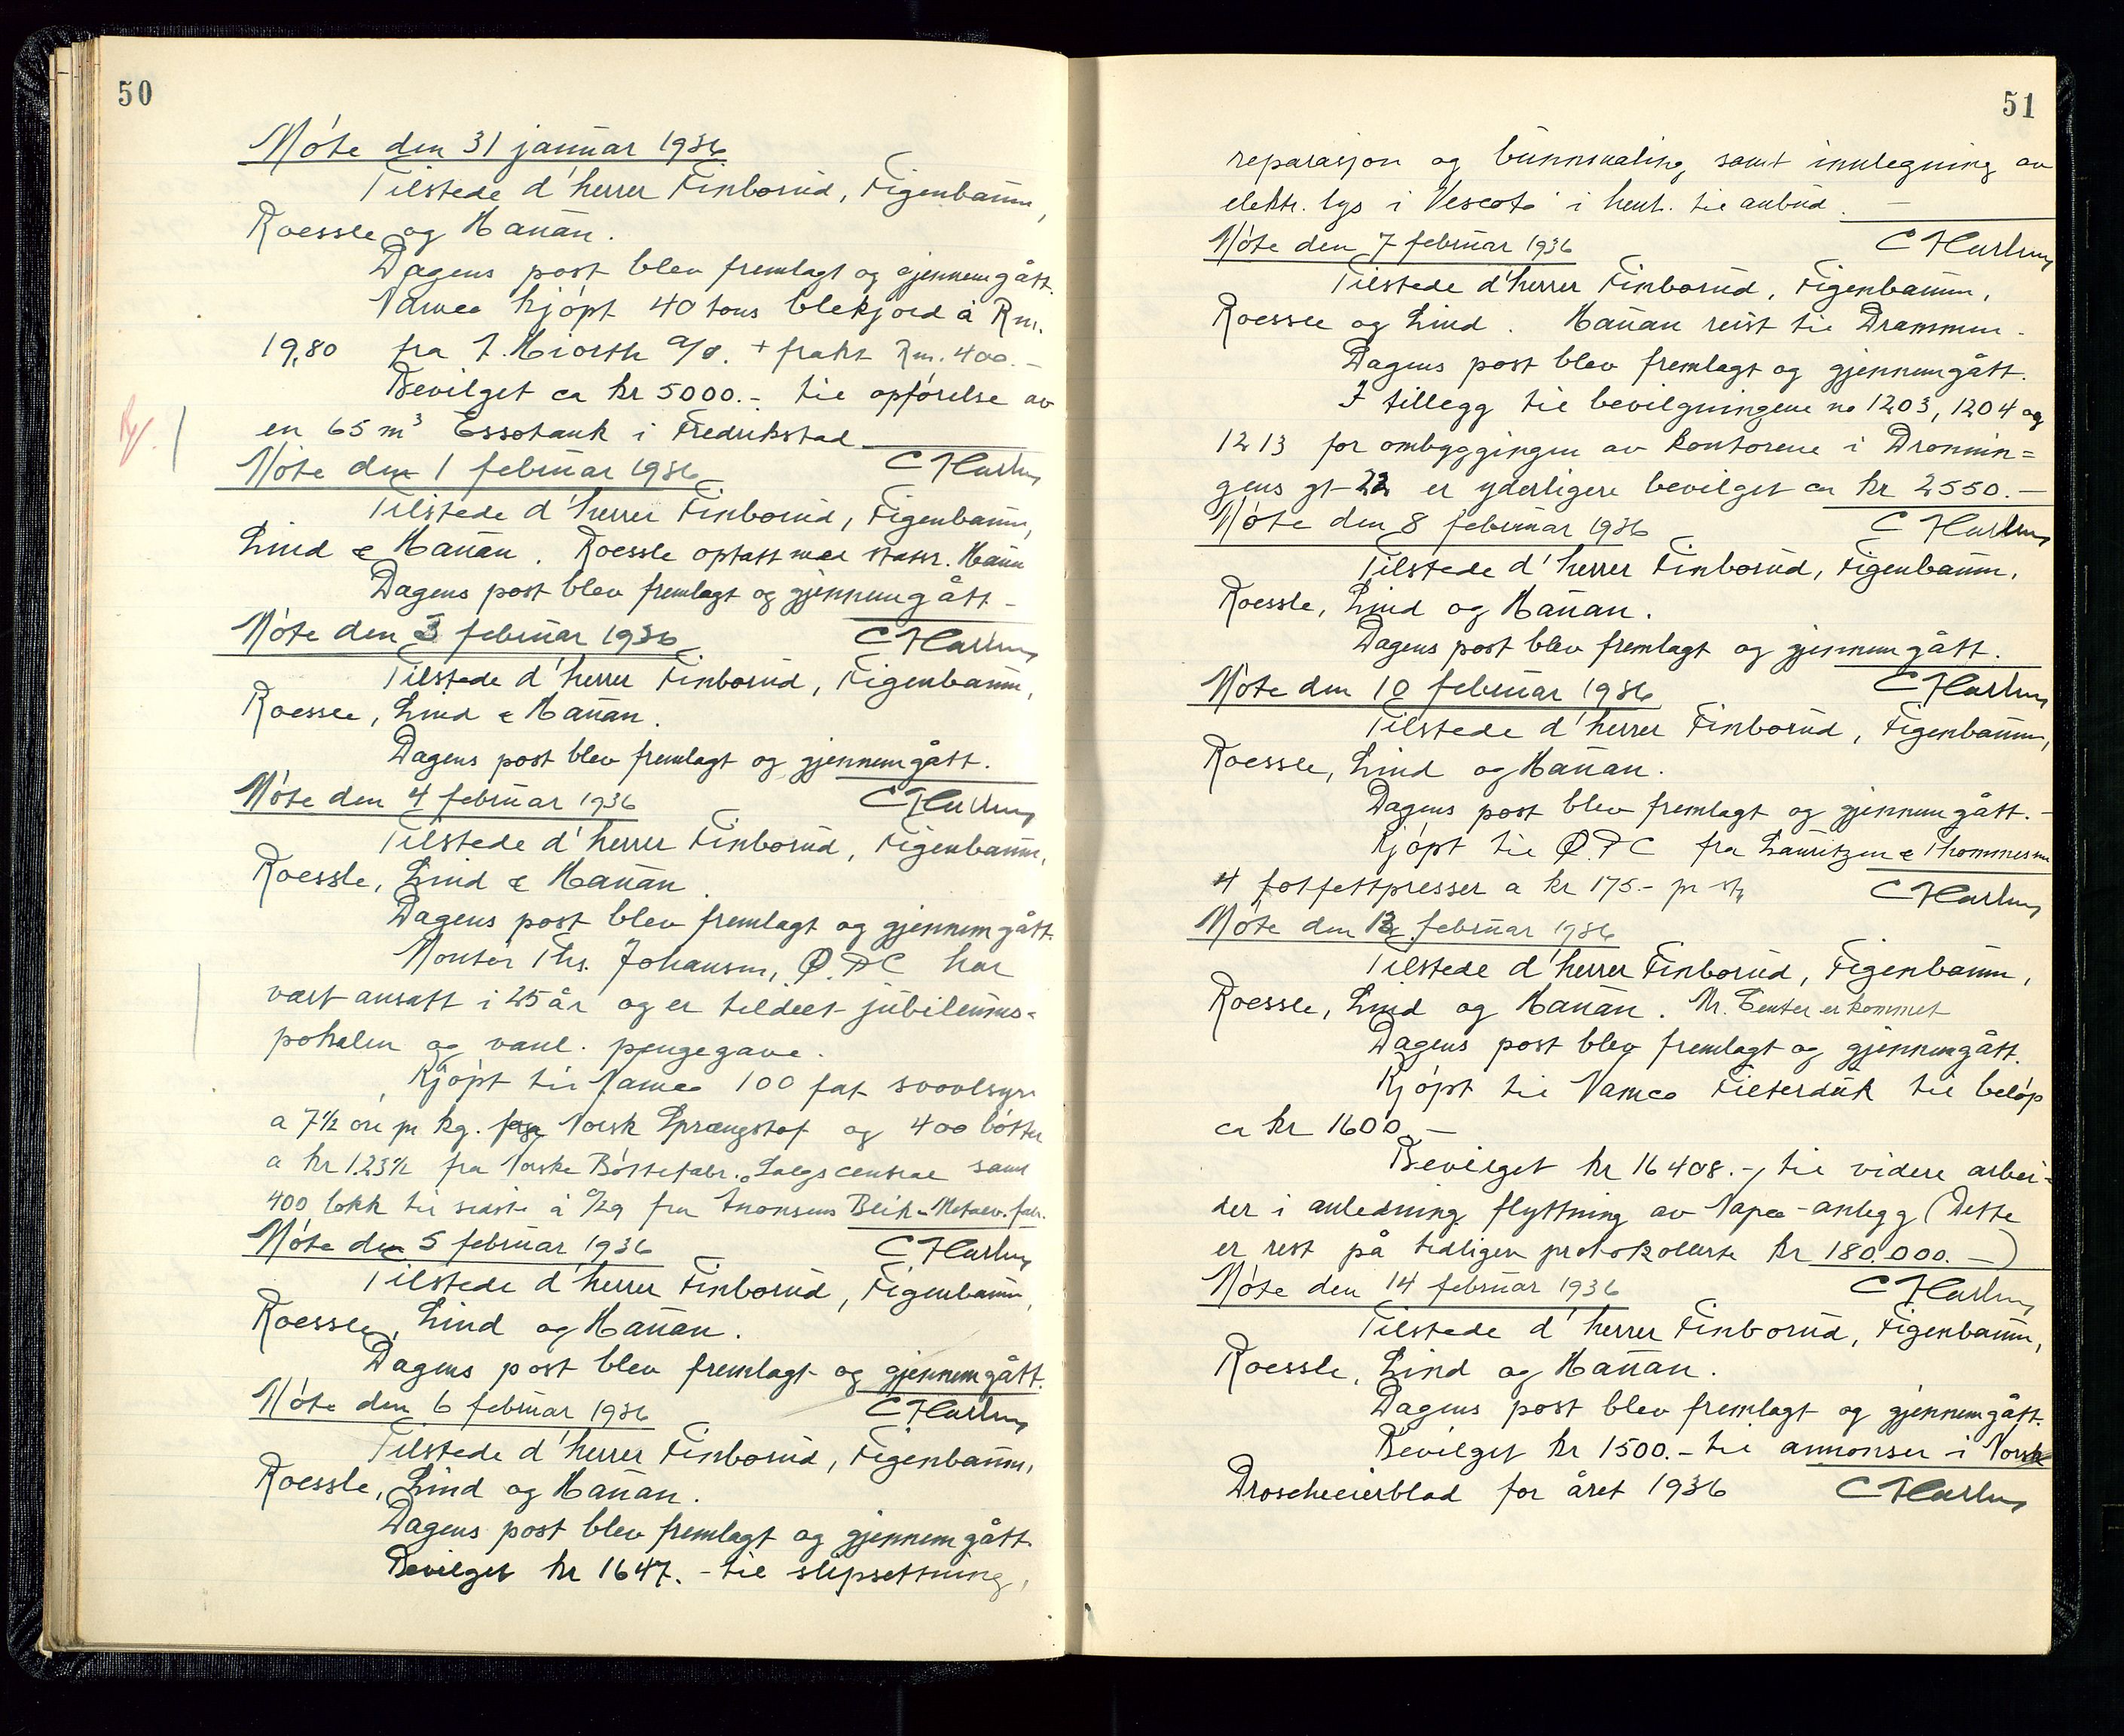 50
Móte den 31 januar 1936
Tilstede d'herrer Finborud, Figenbaum,
Roessle og Hanan.
Dagens post blev fremlagt og gjennemgått.
Vamco kjópt 40 tons blekjord à Rm.
19,80 fra J. Hiorth a/s. + frakt Rm. 400.-
Bevilget ca kr 5000.- til opførelse av
en 65 m³ Essotank i Fredrikstad
Móte den 1 februar 1936
Tilstede d'herrer Finborud, Figenbaum,
Lind & Hanan. Roessle optatt med
Dagens post blev fremlagt og gjennemgått -
Móte den 3 februar 1936
Tilstede d'herrer Finborud, Figenbaum,
Roessle, Lind & Hanan.
Dagens post blev fremlagt og gjennemgått.
Móte den 4 februar 1936
Tilstede d'herrer Finborud, Figenbaum,
Roessle, Lind & Hanan.
Dagens post blev fremlagt og gjennemgått.
Montór Ths. Johansen, Ø.P.C har
vært ansatt i 25 år og er tildelt jubileums-
pokalen og vanl. pengegave.
Kjópt til Vamco 100 fat svovlsyre
a 7½ óre pr kg. fra Norsk Sprængstof og 400 bótter
a kr 1.23½ fra Norske Bóttefabr. Salgscentral samt
400 lokk til siste à fra Blik- Metalv.fabr.
Móte den 5 februar 1936
Tilstede d'herrer Finborud, Figenbaum,
Roessle, Lind og Hanan.
Dagens post blev fremlagt og gjennemgått.
Móte den 6 februar 1936
Tilstede d'herrer Finborud, Figenbaum,
Roessle, Lind og Hanan.
Dagens post blev fremlagt og gjennemgått.
Bevilget kr 1647.- til slipsettning,
51
reparasjon og bunnmaling, samt innlegning av
elektr. lys i Vescoto i henh. til anbud.
Móte den 7 februar 1936
Tilstede d'herrer Finborud, Figenbaum,
Roessle og Lind. Hanan reist til Drammen.
Dagens post blev fremlagt og gjennemgått.
I tillegg til bevilgningene no 1203, 1204 og
1213 for ombyggingen av kontorene i Dronnin=
gens gt 22 er yderligere bevilget ca kr 2550.-
Móte den 8 februar 1936
Tilstede d'herrer Finborud, Figenbaum,
Roessle, Lind og Hanan.
Dagens post blev fremlagt og gjennemgått.
Móte den 10 februar 1936
Tilstede d'herrer Finborud, Figenbaum,
Roessle, Lind og Hanan.
Dagens post blev fremlagt og gjennemgått.-
Kjópt til Ø.P.C fra Lauritzen & Thommesen
4 fotfettpresser a kr 175.- pr stk
Móte den februar 1936
Tilstede d'herrer Finborud, Figenbaum,
Roessle, Lind og Hanan. Mr. er kommet
Dagens post blev fremlagt og gjennemgått.
Kjópt til Vamco Filterduk til beløp
ca kr 1600.-
Bevilget kr 16408.-, til videre arbei-
der i anledning flyttning av Vapco-anlegg (Dette
er rest på tidligere protokollerte kr 180.000.-)
Móte den 14 februar 1936
Tilstede d'herrer Finborud, Figenbaum,
Roessle, Lind og Hanan.
Dagens post blev fremlagt og gjennemgått.
Bevilget kr 1500.- til annonser i Norsk
Droscheeierblad for året 1936